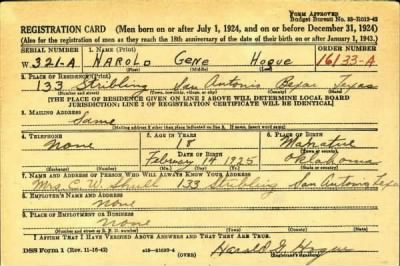 Form Approved
Budget Bureau No. 33-R013-42
REGISTRATION CARD—(Men born on or after July 1, 1924, and on or before December 31, 1924)
(Also for the registration of men as they reach the 18th anniversary of the date of their birth on or after January 1, 1943.)
SERIAL NUMBER 1. NAME (Print) ORDER NUMBER
W 321-A HAROLD GENE HOGUE 16133-A
(First) (Middle) (Last)
2. PLACE OF RESIDENCE (Print)
133 Stribling San Antonio Bexar Texas
(Number and street) (Town, township, village, or city) (County) (State)
[THE PLACE OF RESIDENCE GIVEN ON LINE 2 ABOVE WILL DETERMINE LOCAL BOARD
JURISDICTION; LINE 2 OF REGISTRATION CERTIFICATE WILL BE IDENTICAL]
3. MAILING ADDRESS
Same
[Mailing address if other than place indicated on line 2. If same, insert word same]
4. TELEPHONE 5. AGE IN YEARS 6. PLACE OF BIRTH
None 18
DATE OF BIRTH
February 14 1925 Oklahoma
(Mo.) (Day) (Yr.) (State or country)
7. NAME AND ADDRESS OF PERSON WHO WILL ALWAYS KNOW YOUR ADDRESS
Mrs. E. W. 133 Stribling San Antonio Tex
8. EMPLOYER'S NAME AND ADDRESS
None
9. PLACE OF EMPLOYMENT OR BUSINESS
None
(Number and street or R. F. D. number) (Town) (County) (State)
I AFFIRM THAT I HAVE VERIFIED ABOVE ANSWERS AND THAT THEY ARE TRUE.
DSS Form 1 (Rev. 11-16-42) (OVER) Harold G. Hogue